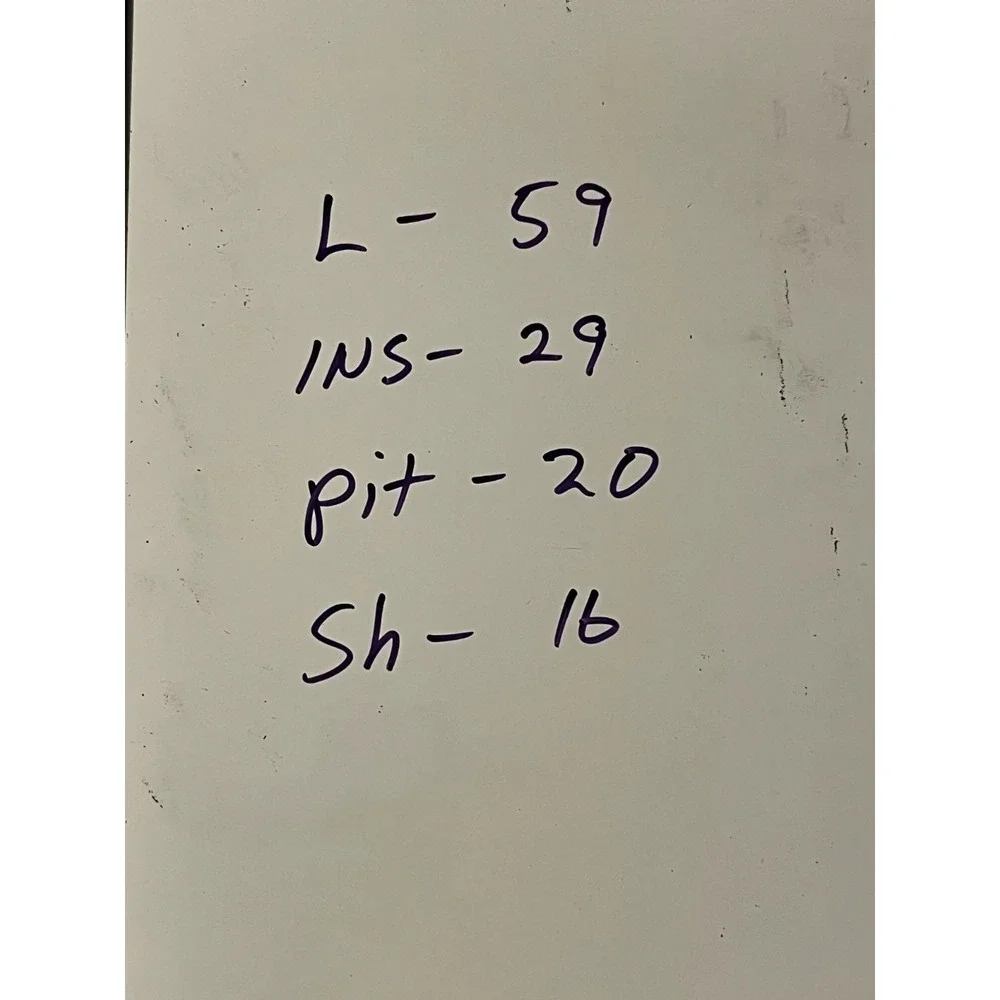 L - 59
INS - 29
pit - 20
Sh - 16